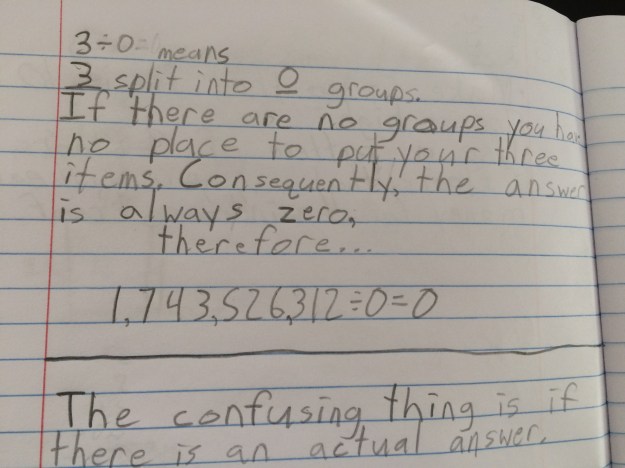 3÷0= means
3 split into 0 groups.
If there are no groups you
no place to put your three
items. Consequently, the answer
is always zero,
therefore...
1,743,526,312÷0=0
The confusing thing is if
there is an actual answer.